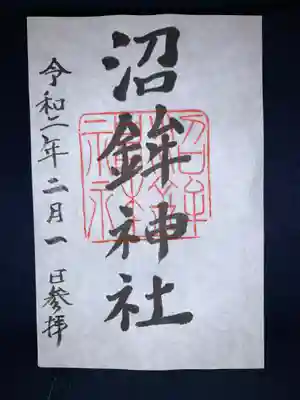 沼鉾神社
令和二年二月一日参拝